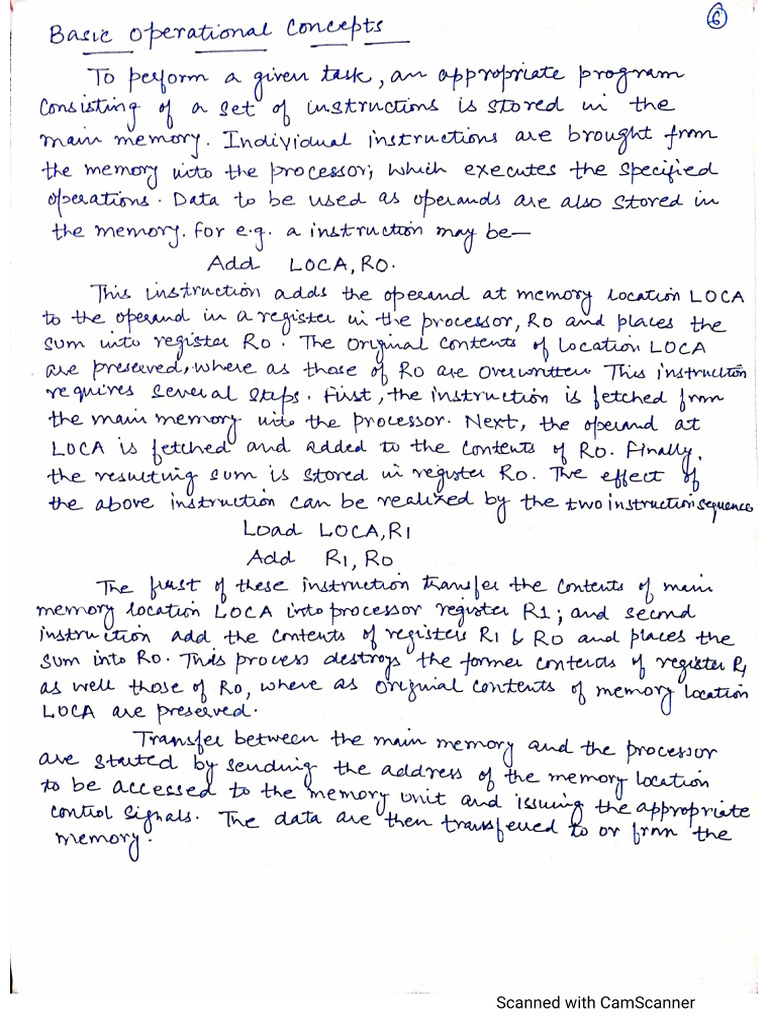 6
Basic Operational Concepts
To perform a given task, an appropriate program
consisting of a set of instructions is stored in the
main memory. Individual instructions are brought from
the memory into the processor, which executes the specified
operations. Data to be used as operands are also stored in
the memory. For e.g. a instruction may be—
Add LOCA, R0.
This instruction adds the operand at memory location LOCA
to the operand in a register in the processor, R0 and places the
sum into register R0. The original contents of location LOCA
are preserved, where as those of R0 are overwritten. This instruction
requires several steps. First, the instruction is fetched from
the main memory into the processor. Next, the operand at
LOCA is fetched and added to the contents of R0. Finally,
the resulting sum is stored in register R0. The effect of
the above instruction can be realized by the two instruction sequence
Load LOCA, R1
Add R1, R0
The first of these instruction transfer the contents of main
memory location LOCA into processor register R1; and second
instruction add the contents of registers R1 & R0 and places the
sum into R0. This process destroys the former contents of register R1
as well those of R0, where as original contents of memory location
LOCA are preserved.
Transfer between the main memory and the processor
are started by sending the address of the memory location
to be accessed to the memory unit and issuing the appropriate
control signals. The data are then transferred to or from the
memory.
Scanned with CamScanner